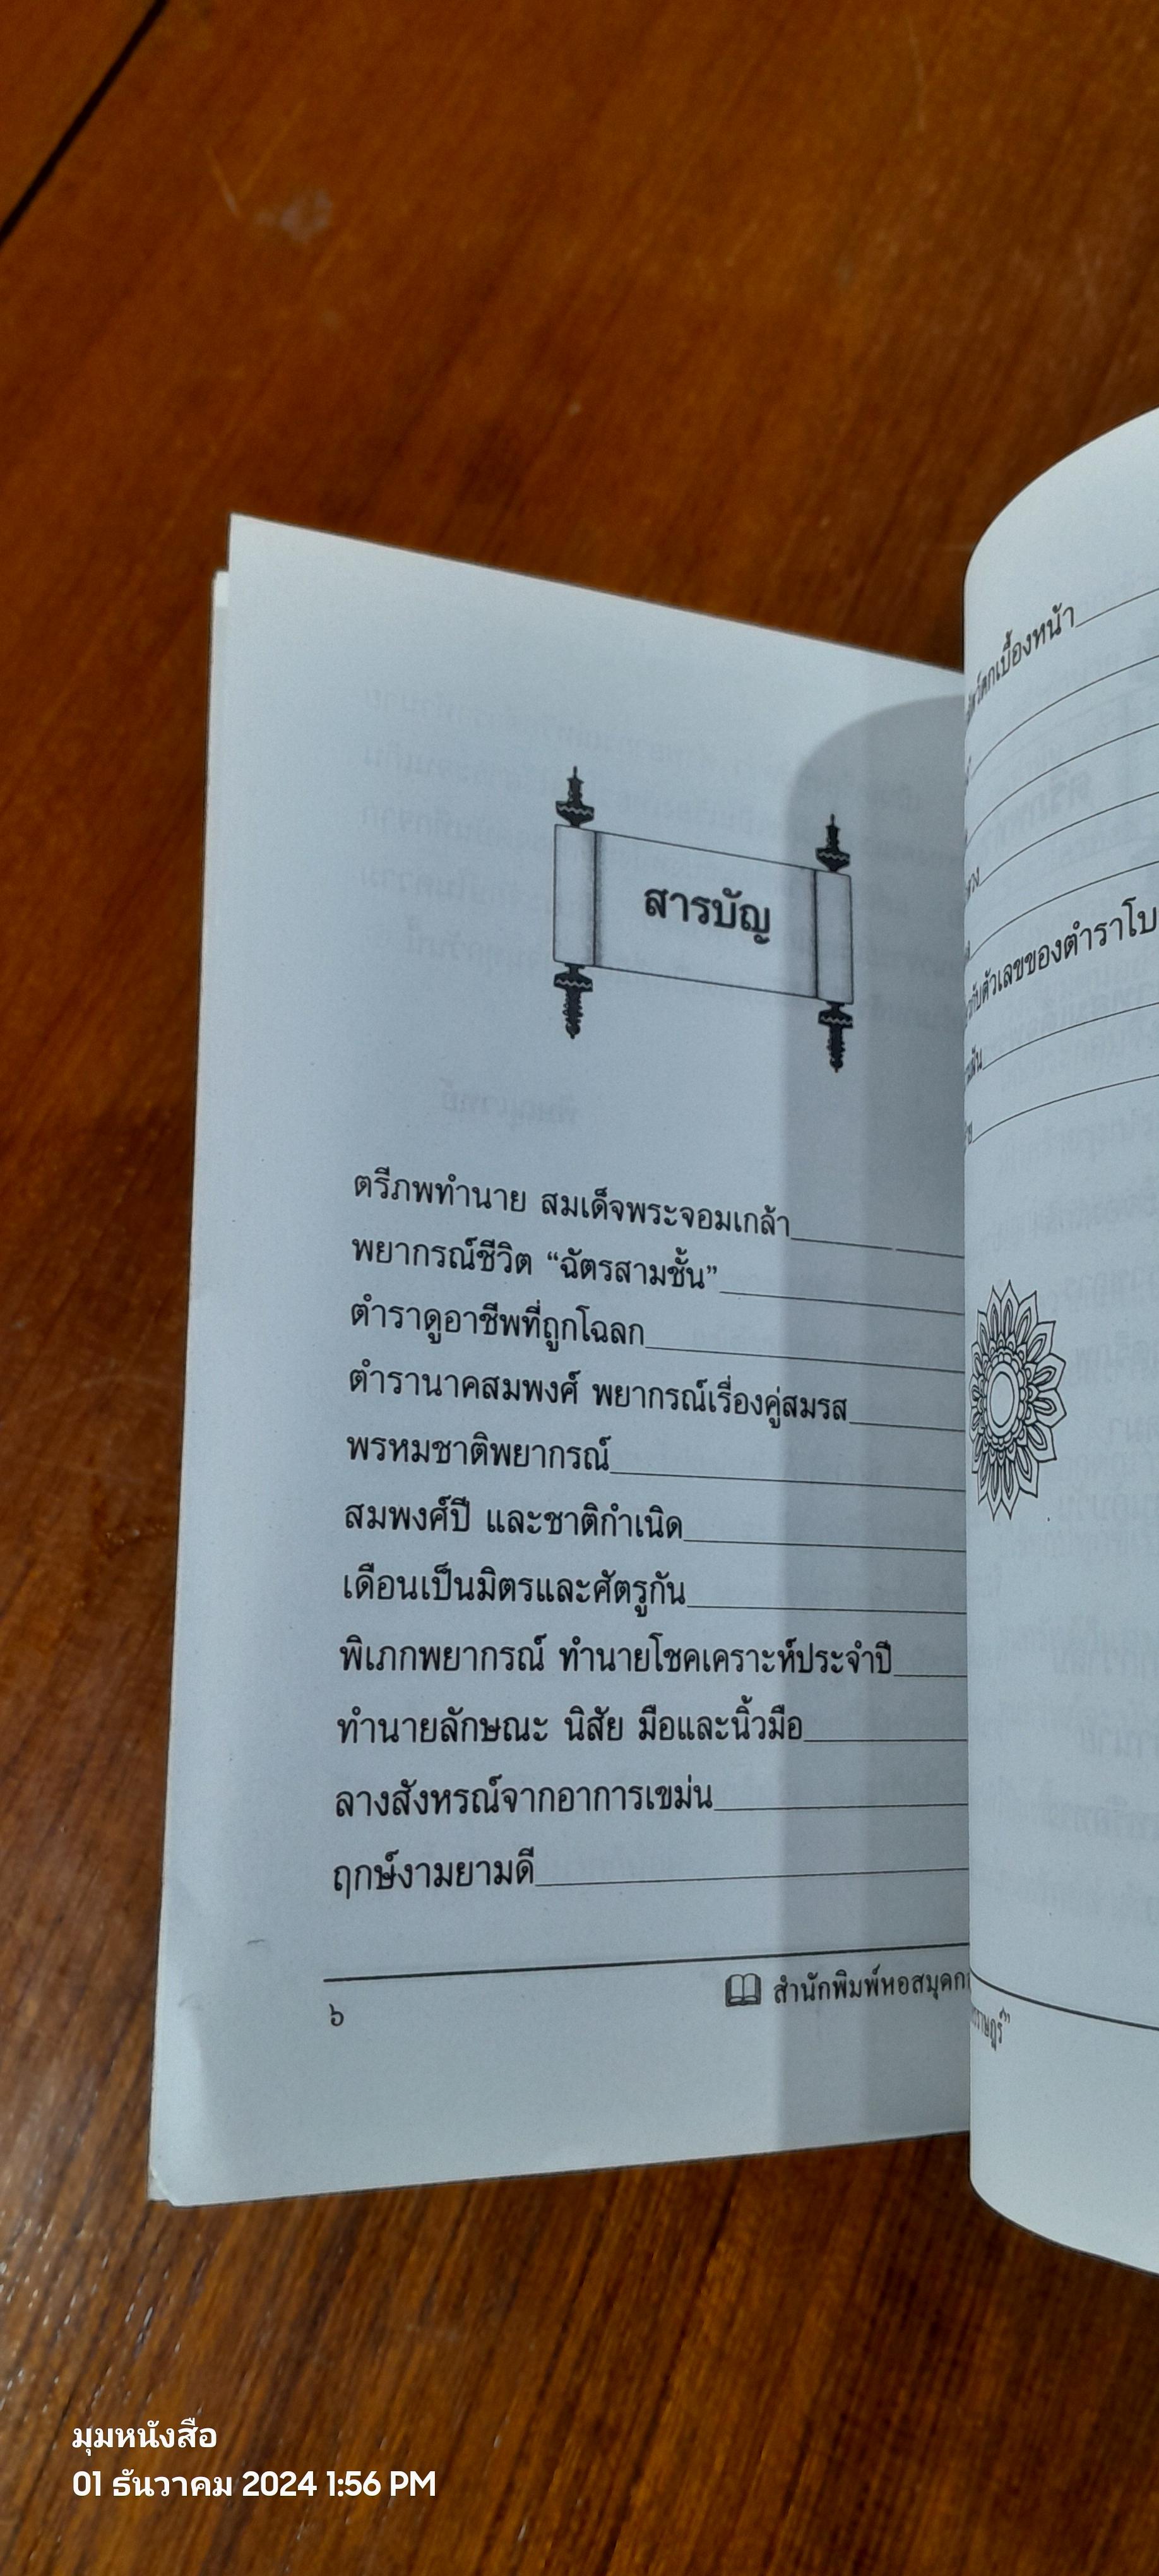 สารบัญ
ตรีภพทำนาย สมเด็จพระจอมเกล้า
พยากรณ์ชีวิต “ฉัตรสามชั้น”
ตำราดูอาชีพที่ถูกโฉลก
ตำรานาคสมพงศ์ พยากรณ์เรื่องคู่สมรส
พรหมชาติพยากรณ์
สมพงศ์ปี และชาติกำเนิด
เดือนเป็นมิตรและศัตรูกัน
พิเภกพยากรณ์ ทำนายโชคเคราะห์ประจำปี
ทำนายลักษณะ นิสัย มือและนิ้วมือ
ลางสังหรณ์จากอาการเขม่น
ฤกษ์งามยามดี
๖
สำนักพิมพ์หอสมุด
ตกเบื้องหน้า
ตัวเลขของตำรา
มุมหนังสือ
01 ธันวาคม 2024 1:56 PM